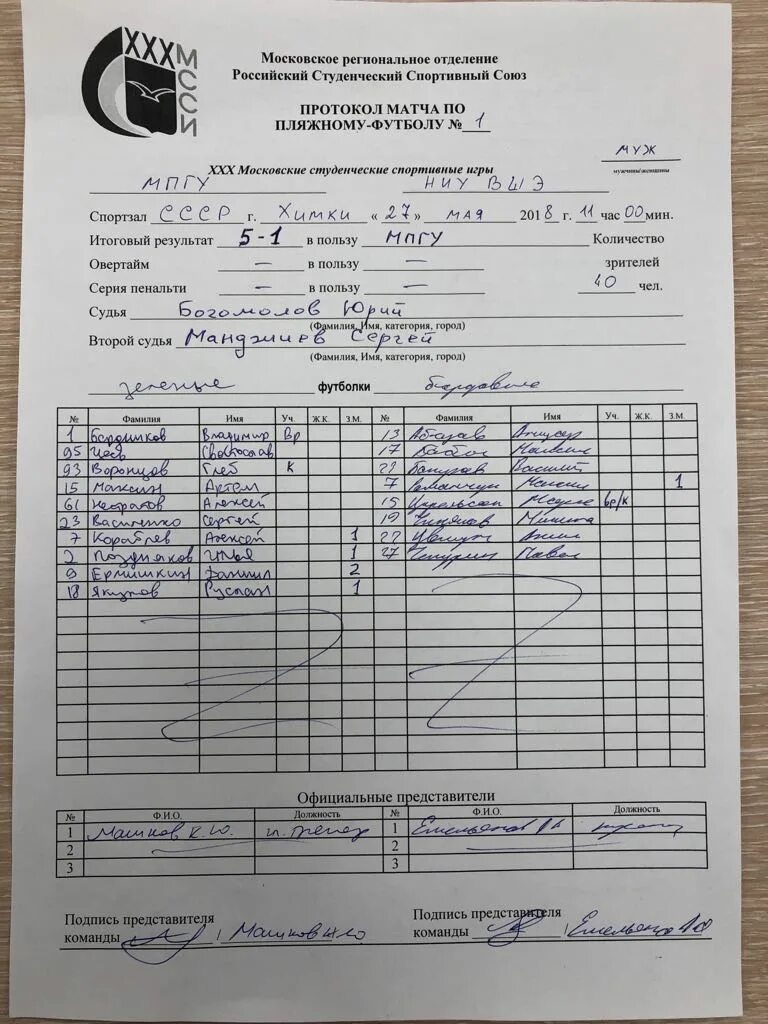 XXX МССИ
Московское региональное отделение
Российский Студенческий Спортивный Союз
ПРОТОКОЛ МАТЧА ПО
ПЛЯЖНОМУ-ФУТБОЛУ № 1
муж
XXX Московские студенческие спортивные игры мужчины/женщины
МПГУ НИУ ВШЭ
Спортзал СССР г. Химки «27» мая 2018 г. 11 час 00 мин.
Итоговый результат 5-1 в пользу МПГУ Количество
Овертайм — в пользу — зрителей
Серия пенальти — в пользу — 40 чел.
Судья Богомолов Юрий
(Фамилия, Имя, категория, город)
Второй судья Манджиев Сергей
(Фамилия, Имя, категория, город)
зеленые футболки бордовые
№ Фамилия Имя Уч. Ж.К. З.М. № Фамилия Имя Уч. Ж.К. З.М.
1 Бардинков Владимир Вр 13
95 Святослав 17 Максим
93 Воронцов Глеб К Василий
15 Максин Артем 7 Максим 1
61 Алексей 15 вр/к
23 Василенко Сергей 19 Никита
7 Кораблев Алексей 1
2 Поздняков Илья 1 27 Чепурин Павел
9 Ермишкин Даниил 2
18 Якупов Руслан 1
Официальные представители
№ Ф.И.О. Должность № Ф.И.О. Должность
1 Машков К.Ю. 1
2 2
3 3
Подпись представителя Подпись представителя
команды / Машков команды /